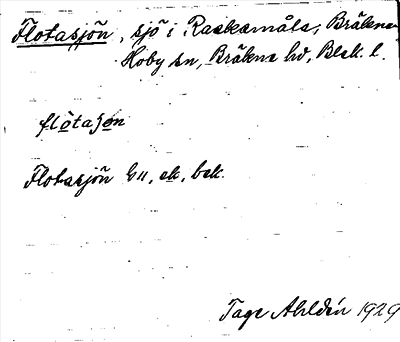 Flotasjön, sjö i Raaksmåla, Bräkne-
Hoby sn, Bräkne hd, Blek. l.
flòtaʃøn
Flotasjön Gu, ek, bek.
Tage Ahldén 1929